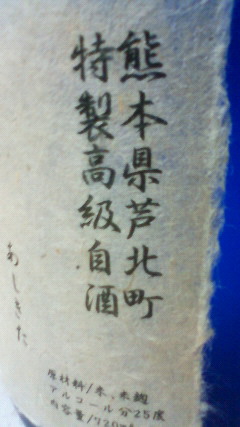 熊本県芦北町
特製高級自酒
あしきた
原材料/米、米麹
アルコール分25度
内容量/720ml